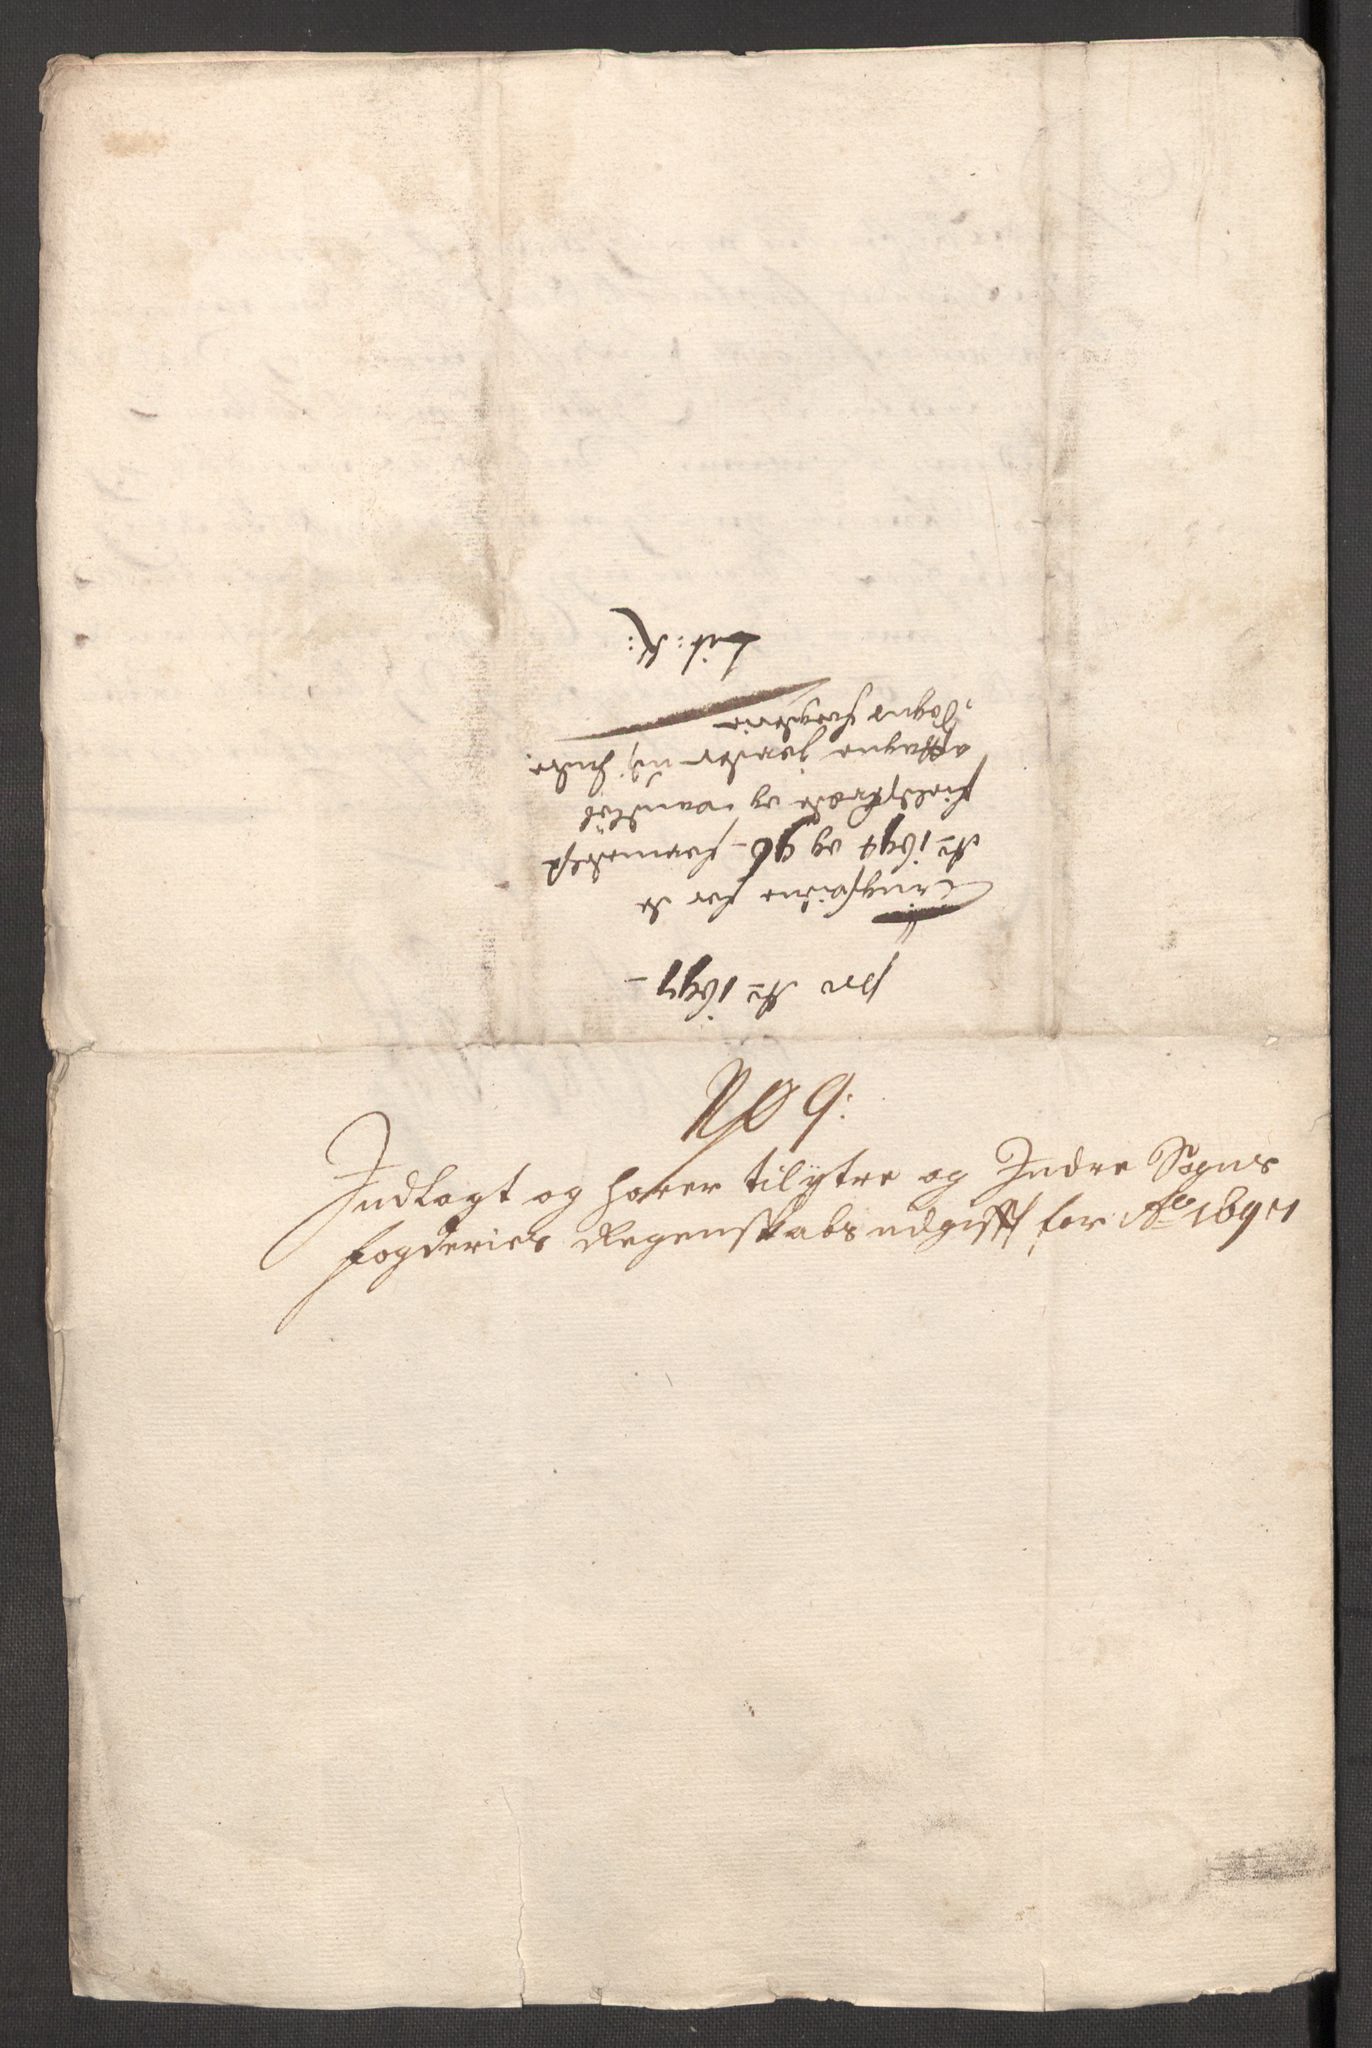 pro Ao 1697 –
Tingsvidne for de
Ao 1694 og 96 – formedelst
fieldskrede og vandbrud
aftagne jorder udj Indre
Sogns fogderie
Lit: K:
No 9:
Indlagt og hører til ytre og Indre Sogns
fogderies Regenskabs udgifft for Ao 1697